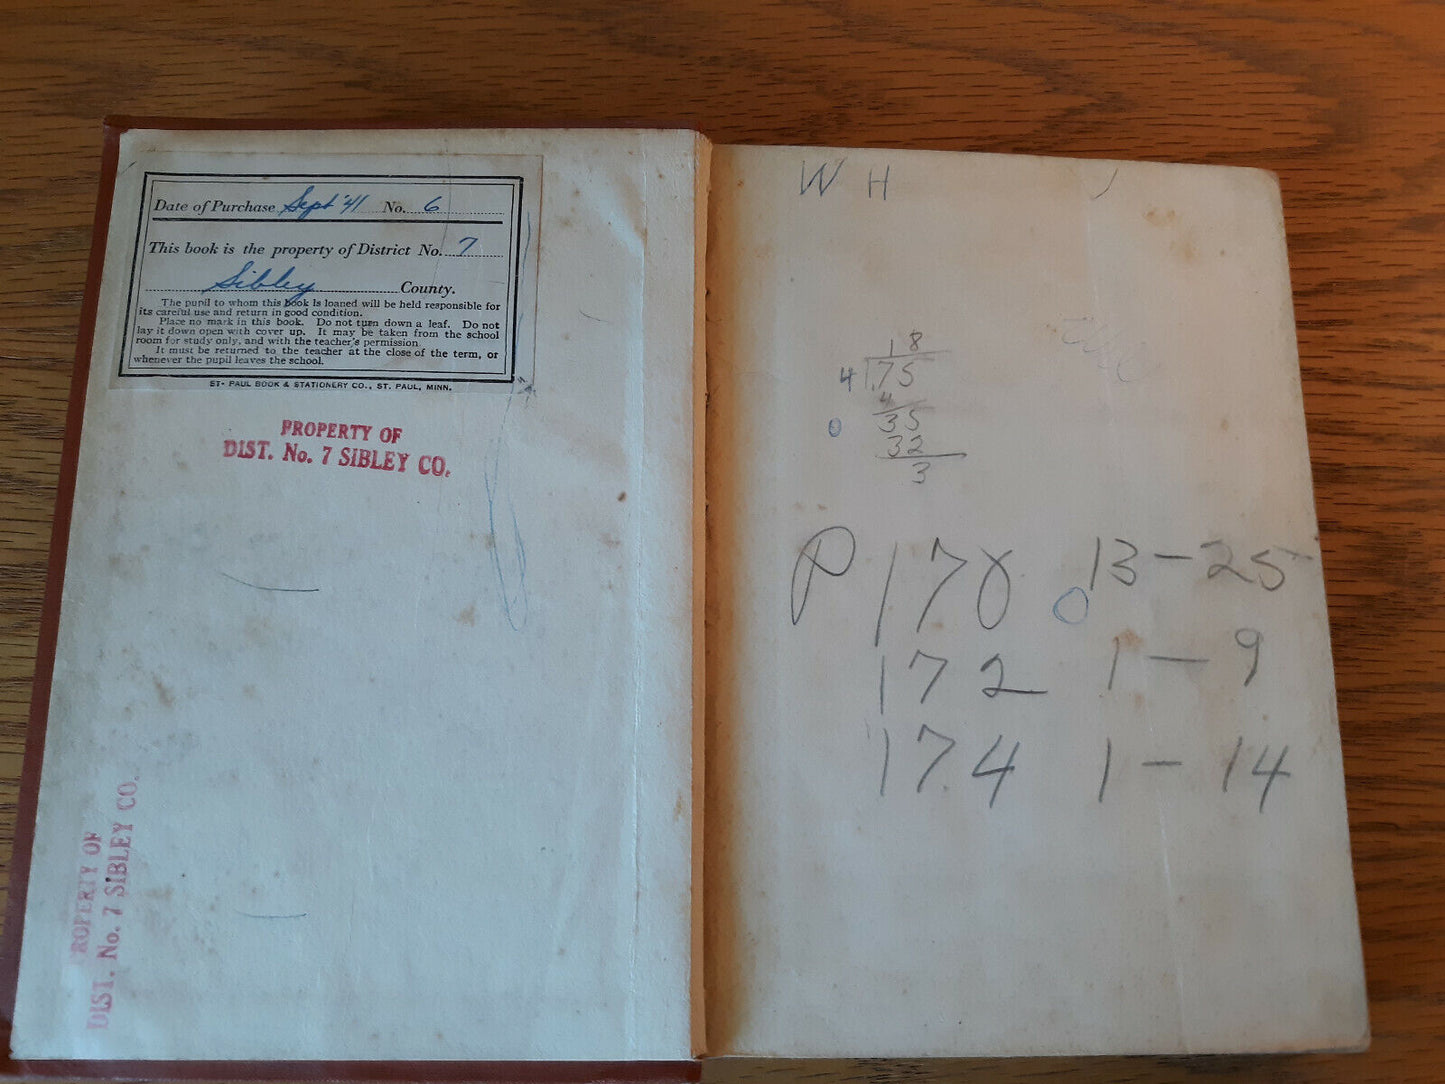 Date of Purchase Sept '41 No. 6
This book is the property of District No. 7
Sibley County.
The pupil to whom this book is loaned will be held responsible for
its careful use and return in good condition.
Place no mark in this book. Do not turn down a leaf. Do not
lay it down open with cover up. It may be taken from the school
room for study only, and with the teacher's permission.
It must be returned to the teacher at the close of the term, or
whenever the pupil leaves the school.
ST. PAUL BOOK & STATIONERY CO., ST. PAUL, MINN.
PROPERTY OF
DIST. No. 7 SIBLEY CO.
ROPERTY OF
DIST. No. 7 SIBLEY CO.
W H
18
4 75
4
0 35
32
3
P 170 0 13-25
172 1-9
174 1-14